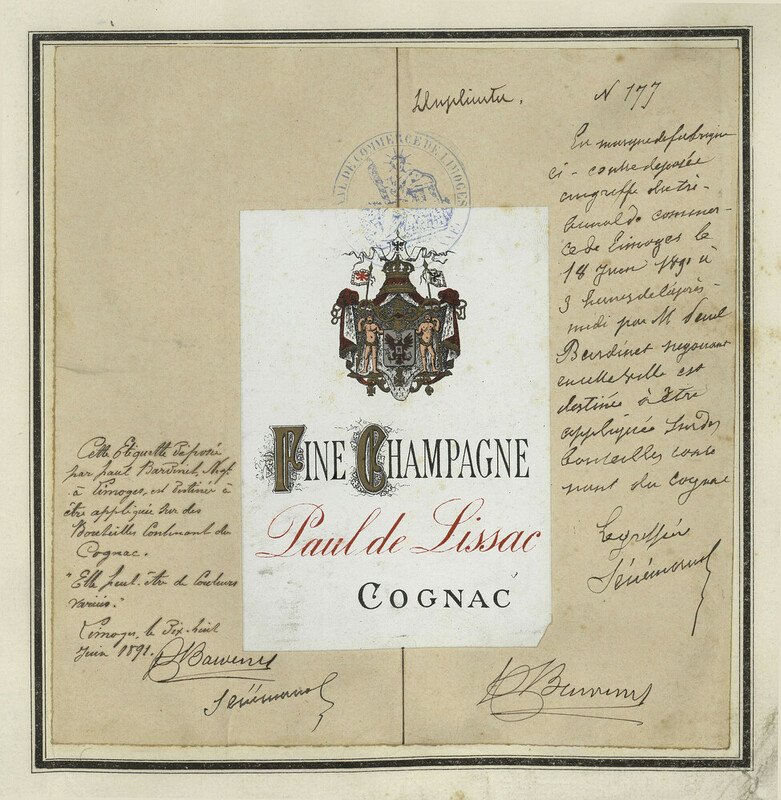 Duplicata.
N 177
La marque de fabrique
ci-contre déposée
au greffe du tri-
bunal de commer-
ce de Limoges le
18 Juin 1891 à
3 heures de l'après-
midi par M Paul
Bardinet négociant
en cette ville est
destinée à être
appliquée sur des
bouteilles conte
nant du cognac
Le greffier
TRIBUNAL DE COMMERCE DE LIMOGES
FINE CHAMPAGNE
Paul de Lissac
COGNAC
Cette Etiquette déposée
par paul Bardinet, Negt
à Limoges, est destinée à
être appliquée sur des
Bouteilles Contenant du
Cognac.
"Elle peut être de Couleurs
variées."
Limoges, le Dix-huit
Juin 1891.
PBardinet
PBardinet